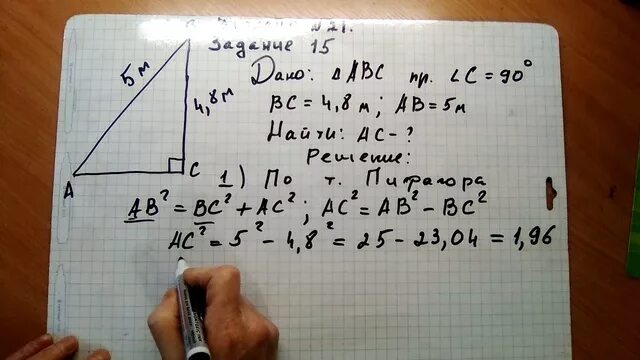 №21.
Задание 15
B
5м
4,8м
A
C
Дано: △ABC пр. ∠C = 90°
BC = 4,8 м; AB = 5м
Найти: AC - ?
Решение:
1) По т. Пифагора
AB² = BC² + AC²; AC² = AB² - BC²
AC² = 5² - 4,8² = 25 - 23,04 = 1,96